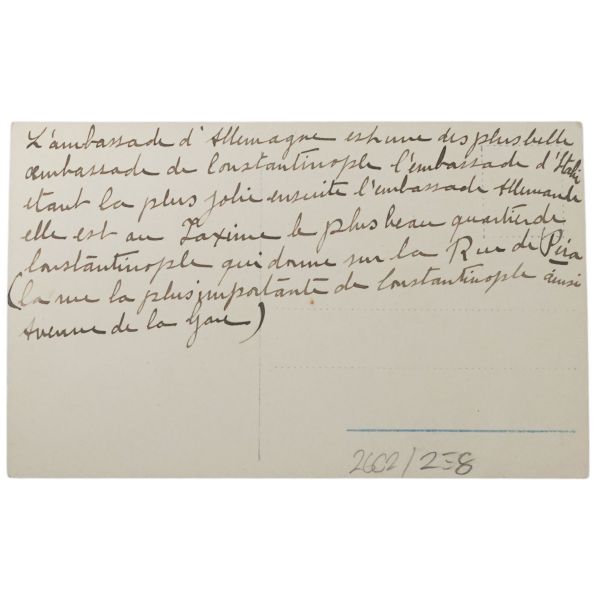 L'ambassade d'Allemagne est une des plus belle
embassade de Constantinople l'embassade d'Italie
etant la plus jolie ensuite l'embassade Allemande
elle est au Taxime le plus beau quartier de
Constantinople qui donne sur la Rue de Péra
(la rue la plus importante de Constantinople ainsi
Avenue de la Gare)
2602/258